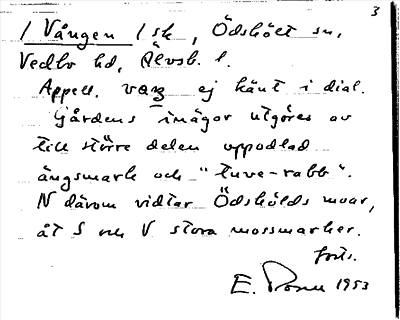 3
/ Vången / sk, Ödskölt sn,
Vedbo hd, Älvsb. l.
Appell. vaŋ ej känt i dial.
Gårdens inägor utgöres av
till större delen uppodlad
ängsmark och "tuve-rabb".
N därom vidtar Ödskölds moar,
åt S och V stora mossmarker.
forts.
E. 1953